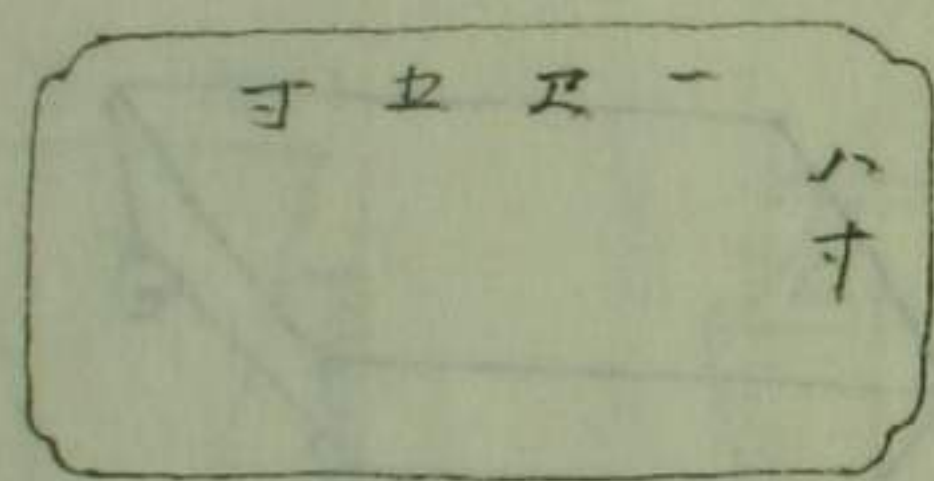 一尺五寸
八寸